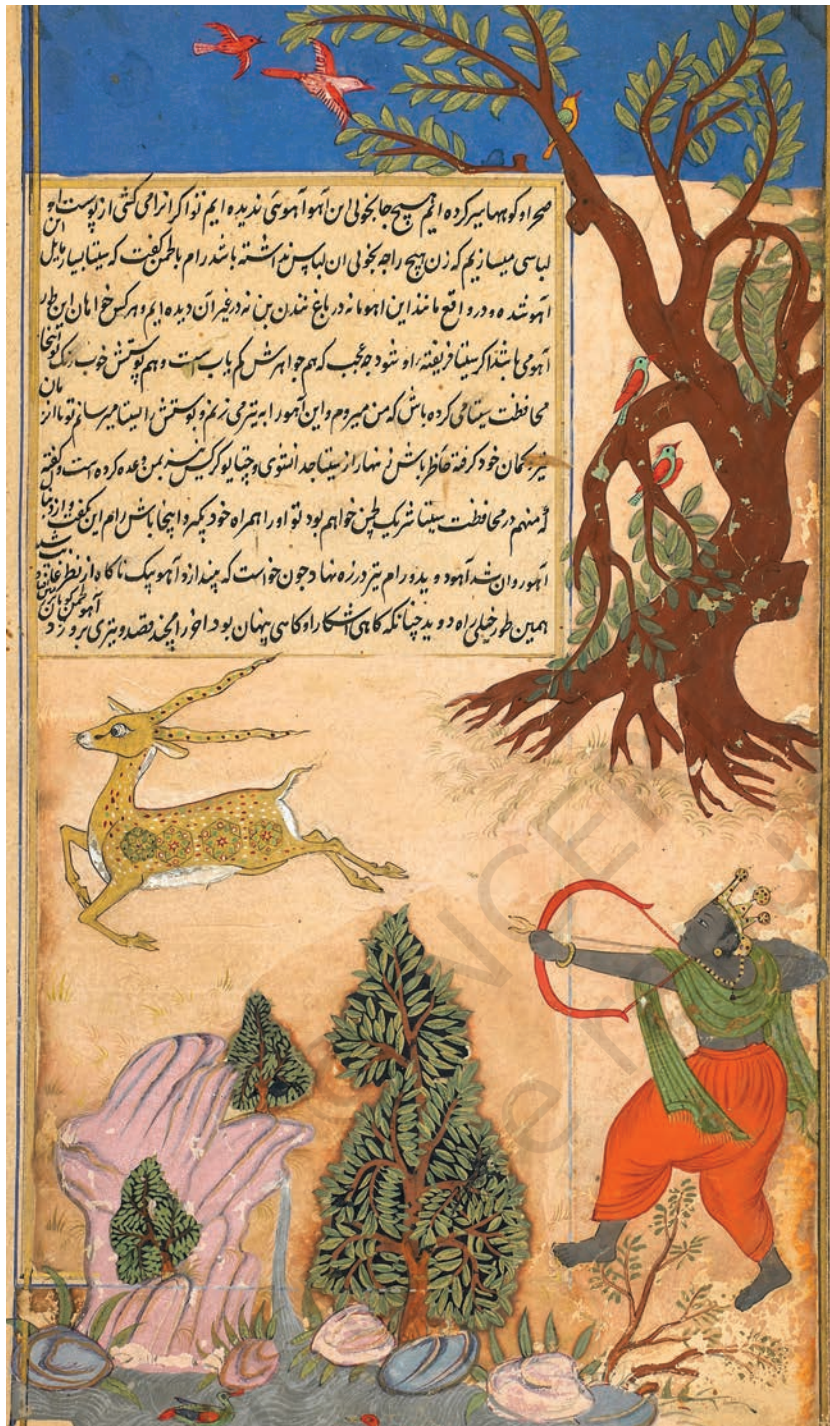 صحرا و کوهها سیر کرده ایم هیچ جا بخوبی این آهو آهوئی ندیده ایم تو اگر انرا می کشی از پوست این
لباسی میسازیم که زن هیچ راجه بخوبی ان لباس نداشته باشد رام با لچمن گفت که سیتا بسیار مایل
آهو شده و در واقع مانند این اهو ما نه در باغ نندن بن نه در غیر آن دیده ایم و هر کس خواهان این طور
آهو می باشد اگر سیتا فریفته او شود چه عجب که هم جواهرش کم یاب است و هم پوستش خوب رنگ تو اینجا
محافظت سیتا می کرده باش که من میروم و این آهو را به تیر می زنم و پوستش را بسیتا میرسانم تو
تیر و کمان خود گرفته حاضر باش زنهار از سیتا جدا نشوی و کرکس نیز بمن وعده کرده است و گفته
که منهم در محافظت سیتا شریک لچمن خواهم بود تو او را همراه خود بگیر و اینجا باش رام این بگفت و از دنبال
آهو روان شد آهو دوید و رام تیر در زه نهاد چون خواست که بیندازد آهو بیک ناکاه از نظر غایب شد
همین طور خیلی راه دوید چنانکه کاهی اشکارا و کاهی پنهان بود اخر رامچند قصد و تیری برو زد
© NCER